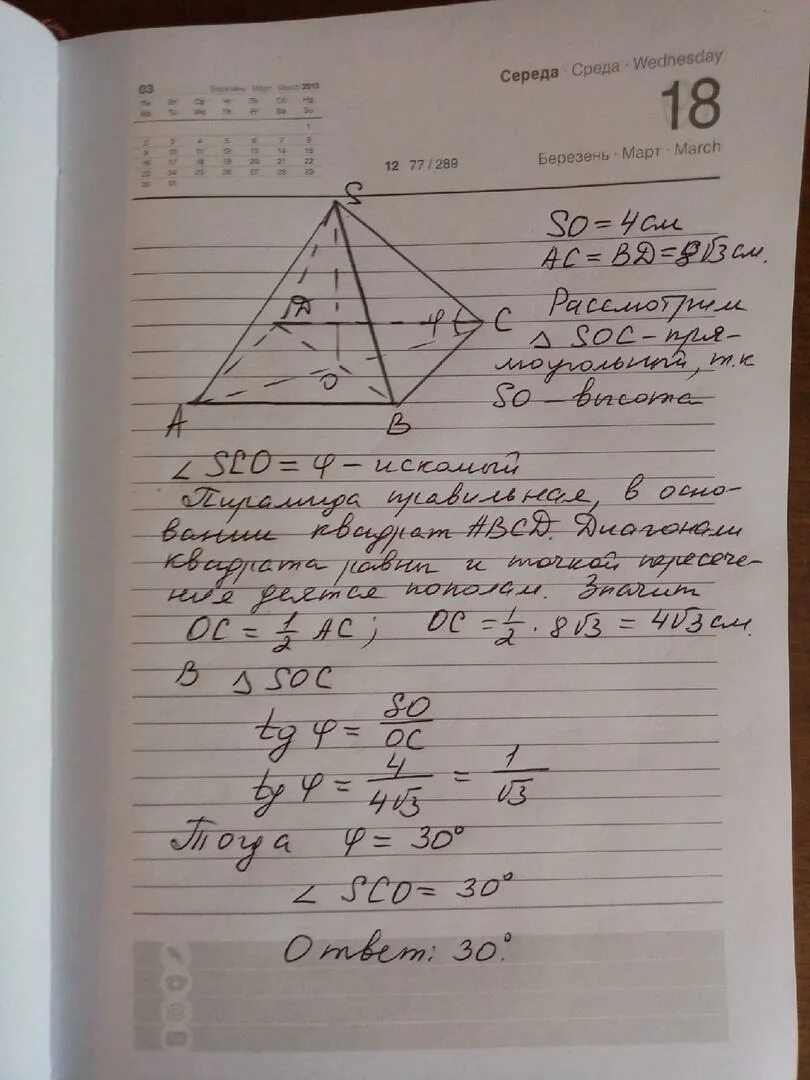 03 Березень Март March 2015
Пн Вт Ср Чт Пт Сб Нд
Mo Tu We Th Fr Sa Su
1
2 3 4 5 6 7 8
9 10 11 12 13 14 15
16 17 18 19 20 21 22
23 24 25 26 27 28 29
30 31
12 77 / 289
Середа · Среда · Wednesday
18
Березень · Март · March
S
D
φ
C
O
A
B
SO = 4 см
AC = BD = 8√3 см.
Рассмотрим
△ SOC – пря-
моугольный, т.к
SO – высота
∠ SCO = φ – искомый
Пирамида правильная, в осно-
вании квадрат ABCD. Диагонали
квадрата равны и точкой пересече-
ния делятся пополам. Значит
OC = 1/2 AC ; OC = 1/2 · 8√3 = 4√3 см.
В △ SOC
tg φ = SO/OC
tg φ = 4/4√3 = 1/√3
Тогда φ = 30°
∠ SCO = 30°
Ответ: 30°.